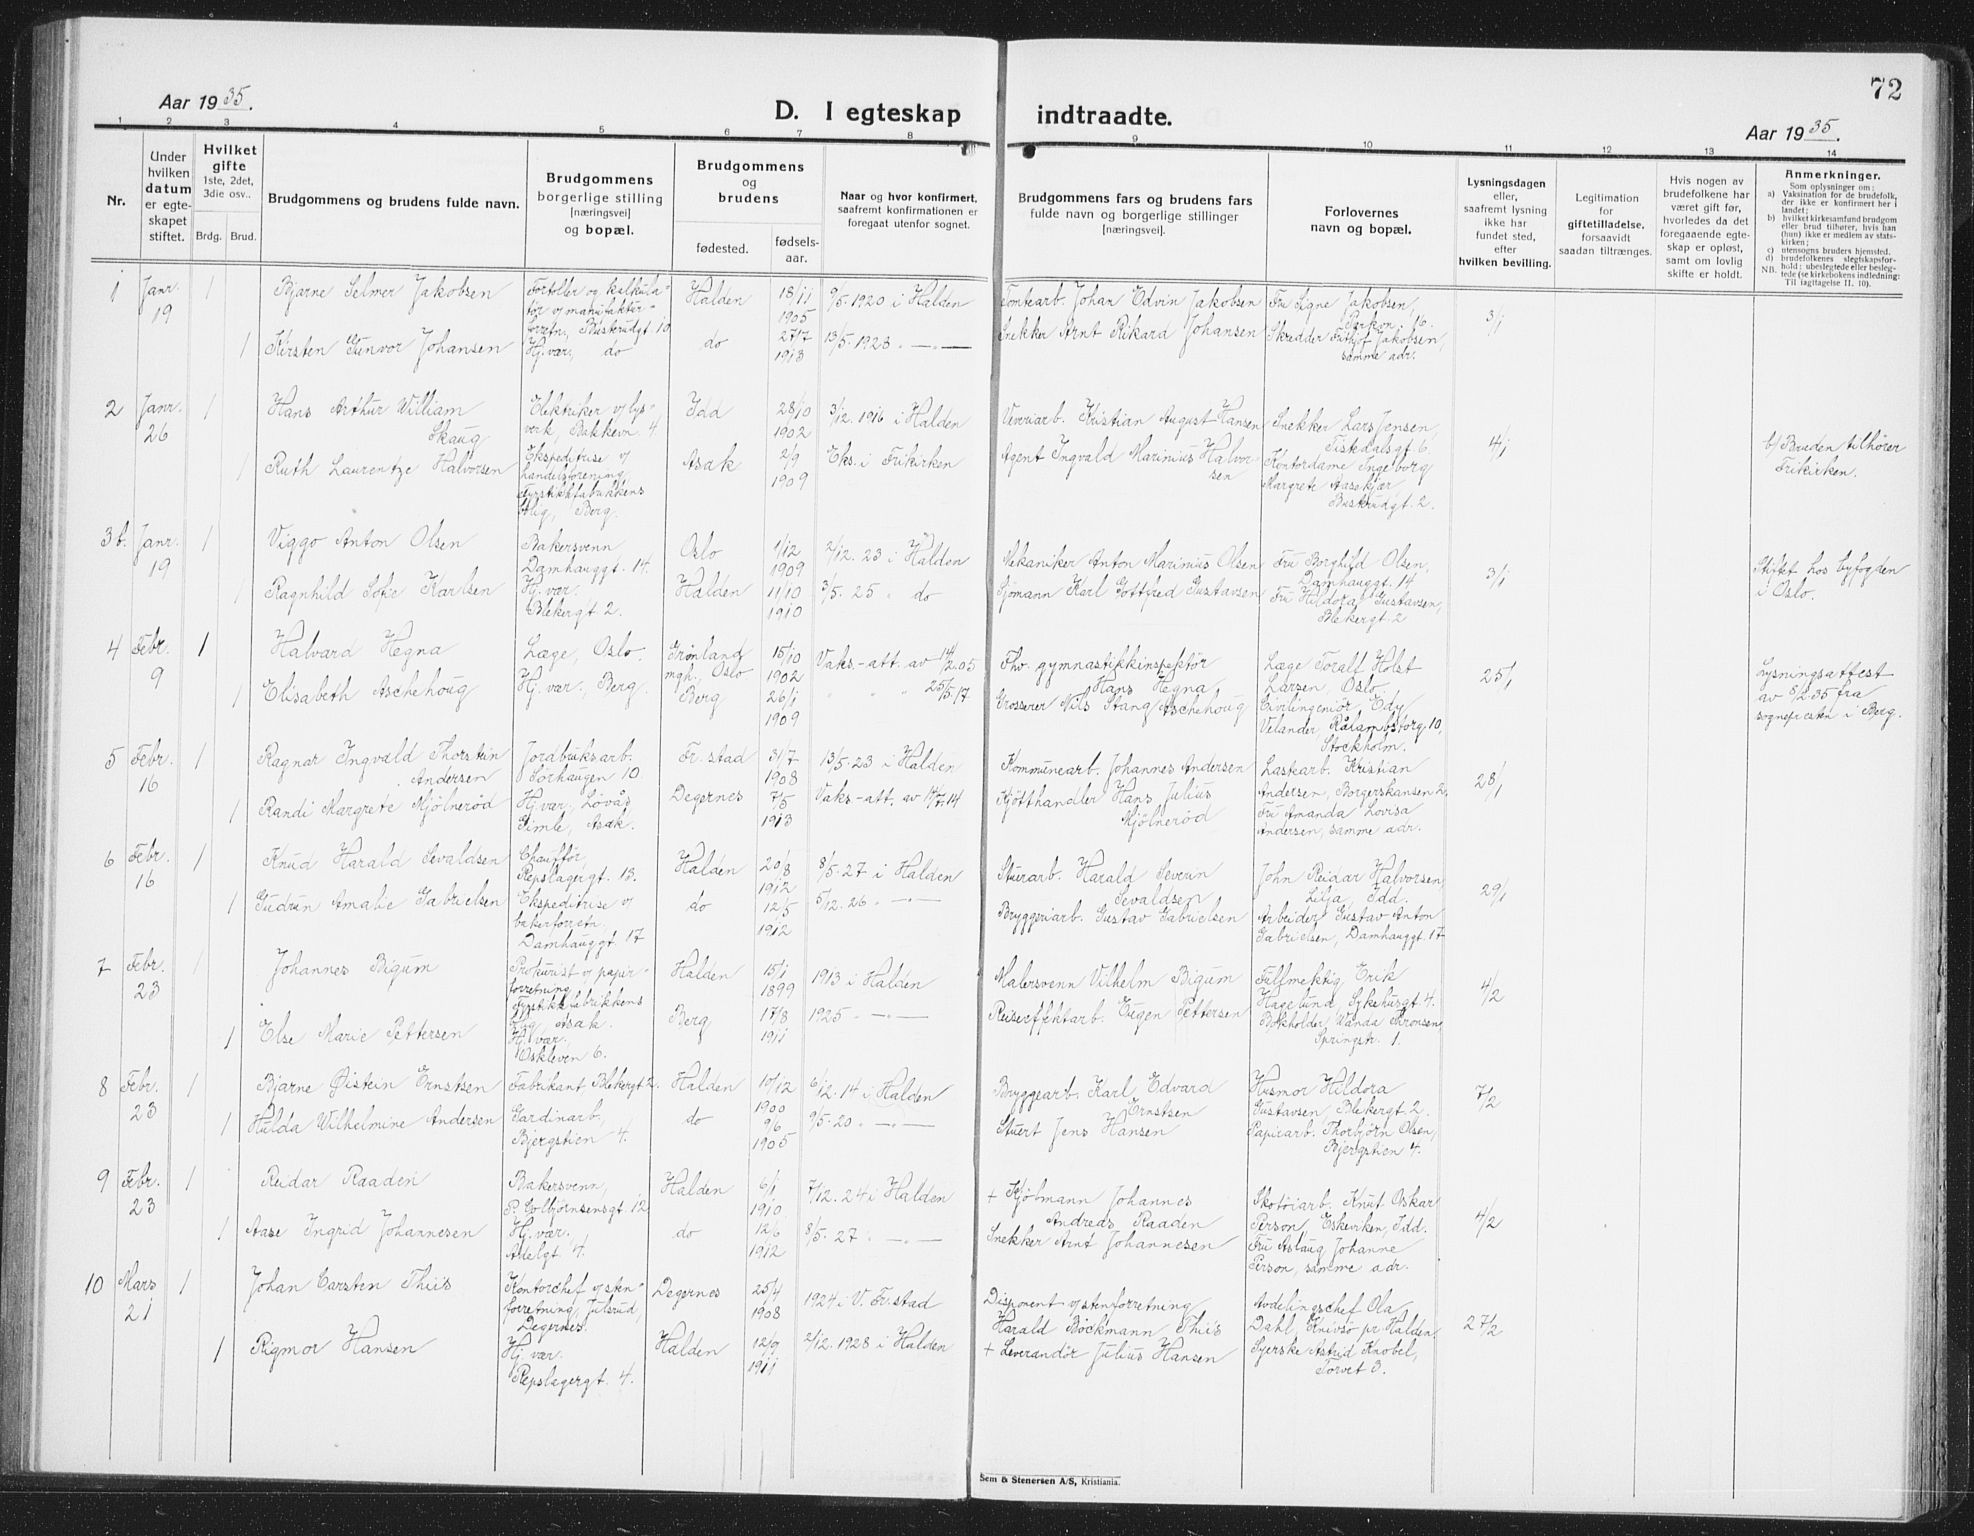 72
Aar 1935.
D. I egteskap indtraadte.
Aar 1935.
1 2 3 4 5 6 7 8 9 10 11 12 13 14
Nr.
Under hvilken datum er egte-skapet stiftet.
Hvilket gifte
1ste, 2det, 3die osv..
Brdg. Brud.
Brudgommens og brudens fulde navn.
Brudgommens borgerlige stilling [næringsvei] og bopæl.
Brudgommens og brudens
fødested. fødsels-aar.
Naar og hvor konfirmert, saafremt konfirmationen er foregaat utenfor sognet.
Brudgommens fars og brudens fars fulde navn og borgerlige stillinger [næringsvei].
Forlovernes navn og bopæl.
Lysningsdagen eller, saafremt lysning ikke har fundet sted, efter hvilken bevilling.
Legitimation for giftetilladelse, forsaavidt saadan tiltrænges.
Hvis nogen av brudefolkene har været gift før, hvorledes da det foregaaende egte-skap er opløst, samt om lovlig skifte er holdt.
Anmerkninger.
Som oplysninger om:
a) Vaksination for de brudefolk, der ikke er konfirmert her i landet;
b) hvilket kirkesamfund brudgom eller brud tilhører, hvis han (hun) ikke er medlem av stats-kirken;
c) utensogns bruders hjemsted.
d) brudefolkenes slegtskapsfor-hold: ubeslegtede eller besleg-tede (se kirkebokens indledning: Til iagttagelse II. 10).
NB.
1 Janr. 19 1 Bjarne Selmer Jakobsen
Fortoller og kalkula-tør v/ manufaktur-forretn., Buskrudgt. 10
Halden 18/11 1905 9/5-1920 i Halden
Tomtearb. Johan Edvin Jakobsen
Fru Signe Jakobsen, Parkvn. 16.
3/1
1 Kirsten Gunvor Johansen
Hj. vær., do
do 27/7 1913 13/5-1928 -"-
Snekker Arnt Rikard Johansen
Skredder Fritjof Jakobsen, samme adr.
2 Janr. 26 1 Hans Arthur William Skaug
Elektriker v/ lys-verk, Bakkevn. 4.
Idd 28/10 1902 3/12 1916 i Halden
Veveriarb. Kristian August Hansen
Snekker Lars Jensen, Fiskdalsgt 6.
4/1
b/ Bruden tilhører Frikirken.
1 Ruth Laurentze Halvorsen
Ekspeditrise v/ Landelsforening, Fyrstikkfabrikkens bolig, Berg.
Asak 2/9 1909 Eks. i Frikirken
Agent Ingvald Marinius Halvor-sen
Kontordame Ingeborg Margrete Aasekjær Buskrudgt. 2.
3 b. Janr. 19 1 Viggo Anton Olsen
Bakersvenn Damhauggt. 14.
Oslo 1/12 1909 2/12. 23 i Halden
Mekaniker Anton Marinius Olsen
Fru Borghild Olsen, Damhauggt. 14
3/1
Stiftet hos byfogden i Oslo.
1 Ragnhild Sofie Karlsen
Hj. vær. Blekergt 2.
Halden 11/10 1910 3/5-25 " do
Sjømann Karl Gottfred Gustavsen
Fru Hildora Gustavsen, Blekergt. 2
4 Febr. 9 1 Halvard Hegna
Læge, Oslo.
Grønland mgh., Oslo 15/10 1902 Vaks.-att. av 14/2.05
Fhv. gymnastikkinspektør Hans Hegna
Læge Toralf Holst Larsen, Oslo.
25/1
Lysningsattest av 8/2 35 fra sognepresten i Berg.
1 Elisabeth Aschehoug
Hj. vær., Berg.
Berg 26/1 1909 " " " 25/5-17
Grosserer Nils Stang Aschehoug
Civilingeniør Edy Velander, Rålambstorg 10, Stockholm.
5 Febr. 16 1 Ragnar Ingvald Thorstein Andersen
Jordbruksarb. Sørhaugen 10.
Fr. stad 31/7 1908 13/5-23 i Halden
Kommunearb. Johannes Andersen
Lastearb. Kristian Andersen, Borgerskansen 2,
28/1
1 Randi Margrete Mjølnerød
Hj. vær., Løvås, Gimle, Asak.
Degernes 7/5 1913 Vaks-att. av 14/7.14
Kjøtthandler Hans Julius Mjølnerød
Fru Amanda Lovisa Andersen, samme adr.
6 Febr. 16 1 Knud Harald Sevaldsen
Chauffør, Repslagergt. 13.
Halden 20/8 1912 8/5-27 i Halden
Stuerarb. Harald Severin Sevaldsen
John Reidar Halvorsen, Lilja, Idd.
29/1
1 Gudrun Amalie Gabrielsen
Ekspeditrise v/ bakerforretn. Damhauggt. 17
do 12/5 1912 5/12. 26 " -"-
Bryggeriarb. Gustav Gabrielsen
Arbeider Gustav Anton Gabrielsen, Damhauggt. 17
7 Febr. 23 1 Johannes Bigum
Prokurist v/ papir-forretning Fyrstikkfabrikkens Asak.
Halden 15/1 1899 1913 i Halden
Malersvenn Vilhelm Bigum
Fullmektig Erik Hagelund, Sykehusgt 4.
4/2
1 Else Marie Pettersen
Hj. vær. Oskleven 6.
Berg 17/8 1911 1925 -"-
Reiseeffektarb. Eugen Pettersen
Bokholder Wanda Thronsen, Springstr. 1.
8 Febr. 23 1 Bjarne Øistein Ernstsen
Fabrikant, Blekergt 2.
Halden 10/12 1900 6/12. 14 i Halden
Bryggearb. Karl Edvard Ernstsen
Husmor Hildora Gustavsen, Blekergt. 2.
7/2
1 Hulda Wilhelmine Andersen
Gardinarb., Bjergstien 4.
do 9/6 1905 9/5-20 " -"-
Stuert Jens Hansen
Papirarb. Thorbjørn Olsen, Bjergstien 4.
9 Febr. 23 1 Reidar Raaden
Bakersvenn, P. Colbjørnsensgt. 12
Halden 6/1 1910 7/12. 24 i Halden
+ Kjøbmann Johannes Andreas Raaden
Skotøiarb. Knut Oskar Person, Eskeviken, Idd.
4/2
1 Aase Ingrid Johannesen
Hj. vær. Adelgt. 4.
do 12/6 1912 8/5-27 " -"-
Snekker Arnt Johannesen
Fru Aslaug Johanne Person, samme adr.
10 Mars 21 1 Johan Carsten Thiis
Kontorchef v/ sten-forretning, Julsrud, Degernes.
Degernes 25/4 1908 1924 i V. Fr. stad
Disponent v/ stenforretning Harald Bøckmann Thiis
Avdelingschef Ola Dahl Knivsø pr Halden.
27/2
1 Rigmor Hansen
Hj. vær. Repslagergt. 4.
Halden 12/9 1911 2/12. 1928 i Halden
+ Leverandør Julius Hansen
Syerske Astrid Knobel, Torvet 3.
Sem & Stenersen A/S, Kristiania.